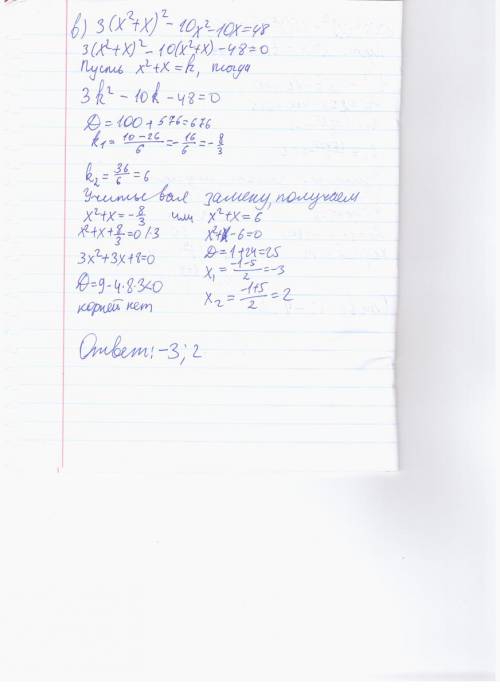 в) 3(x²+x)² - 10x² - 10x = 48
3(x²+x)² - 10(x²+x) - 48 = 0
Пусть x²+x = k, тогда
3k² - 10k - 48 = 0
D = 100 + 576 = 676
k₁ = (10-26)/6 = -16/6 = -8/3
k₂ = 36/6 = 6
Учитывая замену, получаем
x²+x = -8/3 или x²+x = 6
x²+x+8/3 = 0 |·3 x²+x-6=0
3x²+3x+8=0 D = 1+24=25
D=9-4·8·3<0 x₁ = (-1-5)/2 = -3
корней нет x₂ = (-1+5)/2 = 2
Ответ: -3; 2